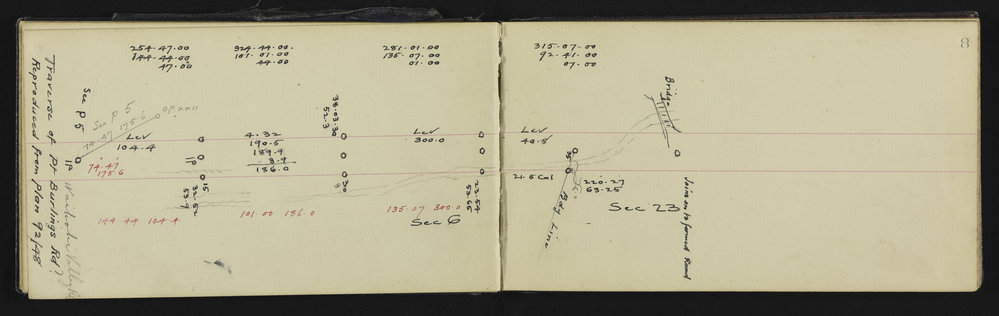 Traverse of pt Burlings Rd
Reproduced from Plan 92/48
See P 5
See P 5
74 47 175 6
OP XXII
IP
Lev
104.4
74.47
175 6
254.47.00
144.44.00
47.00
144 44 104.4
IP
15
324.44.00.
101.01.00
44.00
4.32
190.5
189.9
- 3.9
186.0
101.00 186.0
38.03.30
52.3
281.01.00
135.07.00
01.00
Lev
300.0
135.07 300.0
Sec 6
23.54
315.07.00
92.41.00
07.00
Lev
40.5
21.5 Cal
Bdy Line
220.27
63.25
Sec 23
Bridge
Joins on to formed Road
8